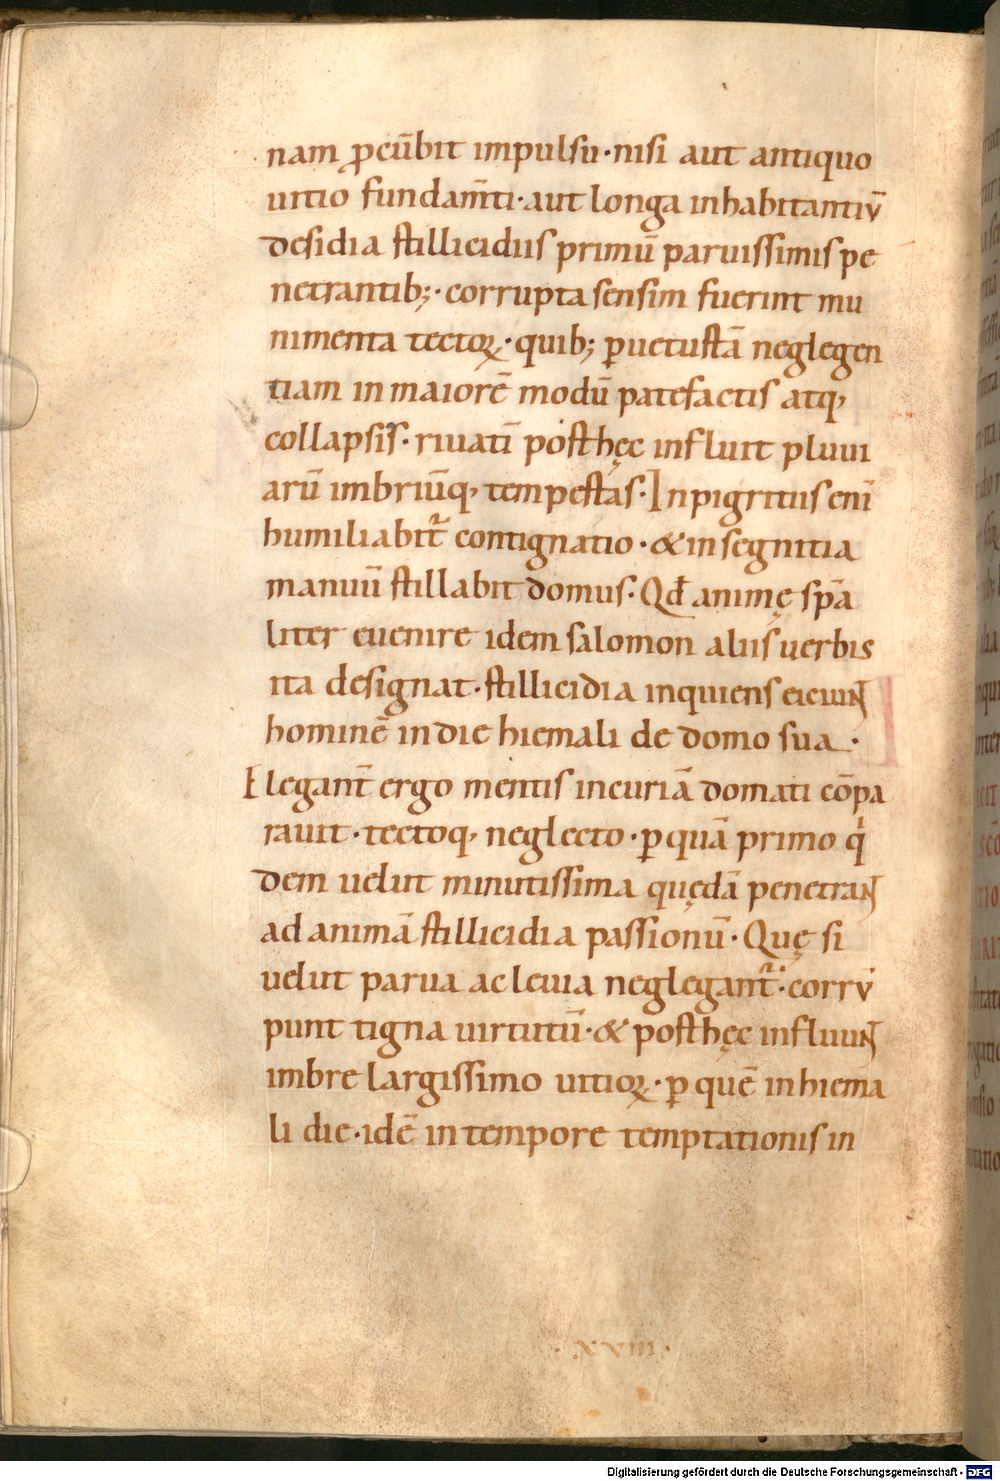 nam ꝓcūbit impulsu·nisi aut antiquo
uitio fundam̄ti·aut longa inhabitantiū
desidia stillicidiis primū paruissimis pe
netrantib;·corrupta sensim fuerint mu
nimenta tectoꝝ·quib; ꝑuetustā neglegen
tiam in maiorē modū patefactis atq,
collapsis·riuatī posthęc influit pluui
arū imbriūq, tempestas·In pigritiis enī
humiliabit᷑ contignatio·& in segnitia
manuū stillabit domus·Qđ animę sp̄a
liter euenire idem salomon aliis uerbis
ita designat·stillicidia inquiens eiciunt
hominē in die hiemali de domo sua·
Elegant̄ ergo mentis incuriā domati cōpa
rauit·tectoq, neglecto·ꝑ quā primo qͥ
dem uelut minutissima quędā penetrant
ad animā stillicidia passionū·Quę si
uelut parua ac leuia neglegant᷑·corrū
punt tigna uirtutū·& posthęc influunt
imbre largissimo uitioꝝ·ꝑ quē in hiema
li die·idē in tempore temptationis in
·XXIII·
Digitalisierung gefördert durch die Deutsche Forschungsgemeinschaft - DFG